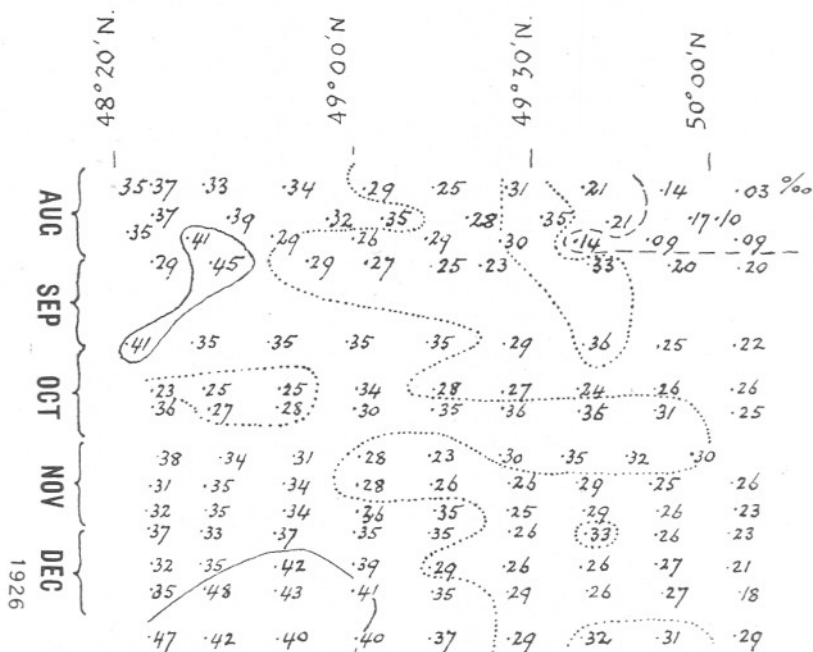 48°20'N. 49°00'N 49°30'N. 50°00'N
AUG
·35 ·37 ·33 ·34 ·29 ·25 ·31 ·21 ·14 ·03 ‰
·37 ·39 ·32 ·35 ·28 ·35 ·21 ·17 ·10
·35 ·41 ·29 ·26 ·29 ·30 ·14 ·09 ·09
SEP
·29 ·45 ·29 ·27 ·25 ·23 ·33 ·20 ·20
·41 ·35 ·35 ·35 ·35 ·29 ·36 ·25 ·22
OCT
·23 ·25 ·25 ·34 ·28 ·27 ·24 ·26 ·26
·36 ·27 ·28 ·30 ·35 ·36 ·36 ·31 ·25
NOV
·38 ·34 ·31 ·28 ·23 ·30 ·35 ·32 ·30
·31 ·35 ·34 ·28 ·26 ·26 ·29 ·25 ·26
·32 ·35 ·34 ·26 ·35 ·25 ·29 ·26 ·23
DEC
·37 ·33 ·37 ·35 ·35 ·26 ·33 ·26 ·23
·32 ·35 ·42 ·39 ·29 ·26 ·26 ·27 ·21
·35 ·48 ·43 ·41 ·35 ·29 ·26 ·27 ·18
1926
·47 ·42 ·40 ·40 ·37 ·29 ·32 ·31 ·29